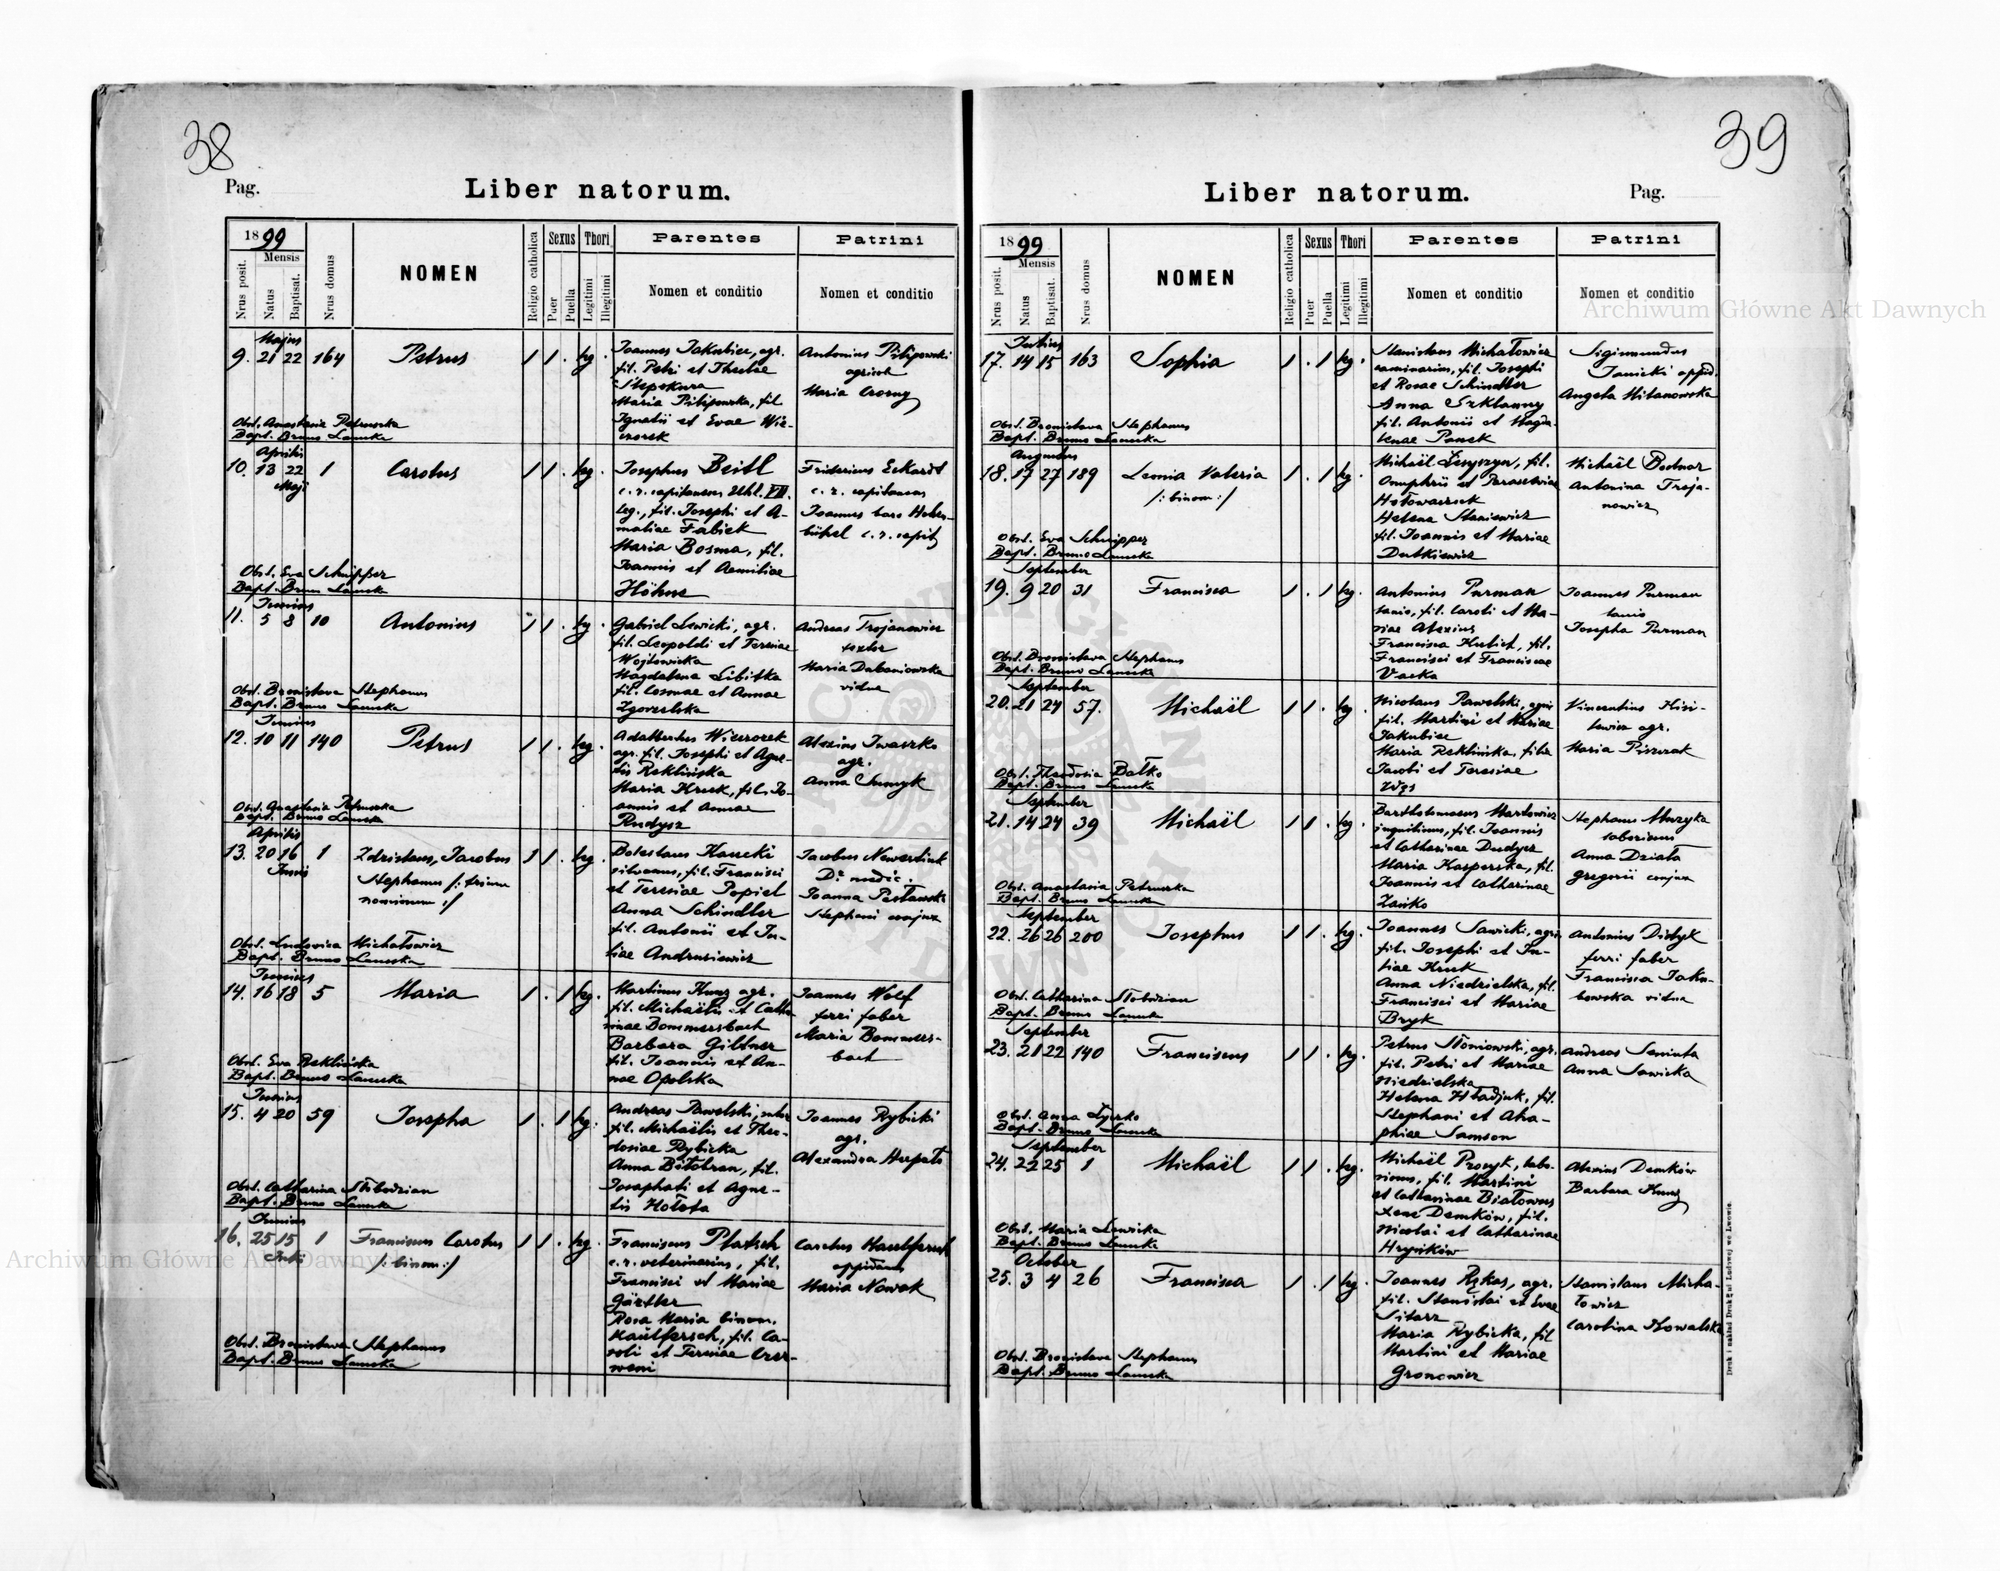 38
Pag.
Liber natorum.
1899
Mensis
Nrus posit.
Natus
Baptisat.
Nrus domus
NOMEN
Religio catholica
Sexus
Puer
Puella
Thori
Legitimi
Illegitimi
Parentes
Nomen et conditio
Patrini
Nomen et conditio
Majus
9. 21 22 164 Petrus 1 1 . leg.
Joannes Jakubiec, agr.
fil. Petri et Theclae
Maria Pilipowska, fil.
Ignatii et Evae Wie-
czorek
Antonius Pilipowski
agricola
Maria Czorny
Obst. Anastasia Petruszka
Bapt. Bruno
Aprilis
10. 13 22 1 Carolus 1 1 . leg.
Maji
Josephus Beitl
c. r. capitaneus Uhl. VII.
leg., fil. Josephi et A-
maliae Fabick
Maria Bosma, fil.
Joannis et Aemiliae
Höhne
Fridericus Eckardt
c. r. capitaneus
Joannes baro Hohen-
bühel c. r. capit.
Obst. Eva Schnipper
Bapt. Bruno
Junius
11. 5 8 10 Antonius 1 1 . leg.
Gabriel Lewicki, agr.
fil. Leopoldi et Teresiae
Wojtowicka
Magdalena Libitka
fil. Cosmae et Annae
Zgorzelska
Andreas Trojanowicz
textor
Maria Dabaniowska
vidua
Obst. Bronislava Stephanus
Bapt. Bruno
Junius
12. 10 11 140 Petrus 1 1 . leg.
Adalbertus Wieczorek
agr. fil. Josephi et Agne-
tis Reklińska
Maria Kruk, fil. Jo-
annis et Annae
Rudysz
Alexius Iwaszko
agr.
Anna
Obst. Anastasia Petruszka
Bapt. Bruno
Aprilis
13. 20 16 1 Zdzislaus, Jacobus 1 1 . leg.
Junii
Stephanus /: trium
nominum :/
Boleslaus Kanecki
silvanus, fil. Francisci
et Teresiae Popiel
Anna Schindler
fil. Antonii et Ju-
liae Andrusiewicz
Jacobus
Dr. medic.
Joanna
Stephani conjux
Obst. Ludovica Michałowicz
Bapt. Bruno
Junius
14. 16 18 5 Maria 1 . 1 leg.
Martinus Kunz agr.
fil. Michaëlis et Catha-
rinae Bommersbach
Barbara Giltner
fil. Joannis et An-
nae Opolska
Joannes Wolf
ferri faber
Maria Bommers-
bach
Obst. Eva Reklińska
Bapt. Bruno
Junius
15. 4 20 59 Josepha 1 . 1 leg.
Andreas Pawelski,
fil. Michaëlis et Theo-
dosiae Rybicka
Anna Bilobran, fil.
Josaphati et Agne-
tis Hołota
Joannes Rybicki
agr.
Alexandra
Obst. Catharina Słobodzian
Bapt. Bruno
Junius
16. 25 15 1 Franciscus Carolus 1 1 . leg.
Julii
/: binom :/
Franciscus Platsch
c. r. veterinarius, fil.
Francisci et Mariae
Gärtler
Rosa Maria binom.
Kaulfersch, fil. Ca-
roli et Teresiae Czer-
weni
Carolus Kaulfersch
oppidanus
Maria Nowak
Obst. Bronislava Stephanus
Bapt. Bruno
39
Liber natorum.
Pag.
1899
Mensis
Nrus posit.
Natus
Baptisat.
Nrus domus
NOMEN
Religio catholica
Sexus
Puer
Puella
Thori
Legitimi
Illegitimi
Parentes
Nomen et conditio
Patrini
Nomen et conditio
Julius
17. 14 15 163 Sophia 1 . 1 leg.
Stanislaus Michałowicz
caminarius, fil. Josephi
et Rosae Schindler
Anna Szklanny
fil. Antonii et Magda-
lenae Panek
Sigismundus
Janicki oppid.
Angela Milanowska
Obst. Bronislava Stephanus
Bapt. Bruno
Augustus
18. 17 27 189 Leonia Valeria 1 . 1 leg.
/: binom :/
Michaël Łesyszyn, fil.
Onuphrii et Parasceviae
Hołowaczek
Helena Staniewicz
fil. Joannis et Mariae
Dutkiewicz
Michaël Bednar
Antonina Troja-
nowicz
Obst. Eva Schnipper
Bapt. Bruno
September
19. 9 20 31 Francisca 1 . 1 leg.
Antonius Purman
lanio, fil. Caroli et Ma-
riae Alexius
Francisca Kubick, fil.
Francisci et Franciscae
Vacka
Joannes Purman
lanio
Josepha Purman
Obst. Bronislava Stephanus
Bapt. Bruno
September
20. 21 24 57. Michaël 1 1 . leg.
Nicolaus Pawelski, agric.
fil. Martini et Mariae
Jakubiec
Maria Reklińska, filia
Jacobi et Teresiae
Wąs
Vincentius Kisi-
lewicz agr.
Maria Piszczak
Obst. Theodosia Batko
Bapt. Bruno
September
21. 14 24 39 Michaël 1 1 . leg.
Bartholomaeus Markowicz
inquilinus, fil. Joannis
et Catharinae Dudycz
Maria Kasperska, fil.
Joannis et Catharinae
Zańko
Stephanus Muzyka
laborious
Anna Działa
gregorii conjux
Obst. Anastasia Petruszka
Bapt. Bruno
September
22. 26 26 200 Josephus 1 1 . leg.
Joannes Sawicki, agric.
fil. Josephi et Ju-
liae Kruk
Anna Niedzielska, fil.
Francisci et Mariae
Bryk
Antonius Didyk
ferri faber
Francisca Jaku-
bowska vidua
Obst. Catharina Słobodzian
Bapt. Bruno
September
23. 21 22 140 Franciscus 1 1 . leg.
Petrus Słoniowski, agr.
fil. Petri et Mariae
Niedzielska
Helena Hladjuk, fil.
Stephani et Aha-
phiae Samson
Andreas Seniuta
Anna Sawicka
Obst. Anna Łyczko
Bapt. Bruno
September
24. 22 25 1 Michaël 1 1 . leg.
Michaël Procyk, labo-
rious, fil. Martini
et Catharinae Białowus
Xene Demków, fil.
Nicolai et Catharinae
Hryńków
Alexius Demków
Barbara Kunz
Obst. Maria Lewicka
Bapt. Bruno
October
25. 3 4 26 Francisca 1 . 1 leg.
Joannes Rękas, agr.
fil. Stanislai et Evae
Sitarz
Maria Rybicka, fil.
Martini et Mariae
Gronowicz
Stanislaus Micha-
łowicz
Carolina Kowalska
Obst. Bronislava Stephanus
Bapt. Bruno
Archiwum Główne Akt Dawnych
Archiwum Główne Akt Dawnych